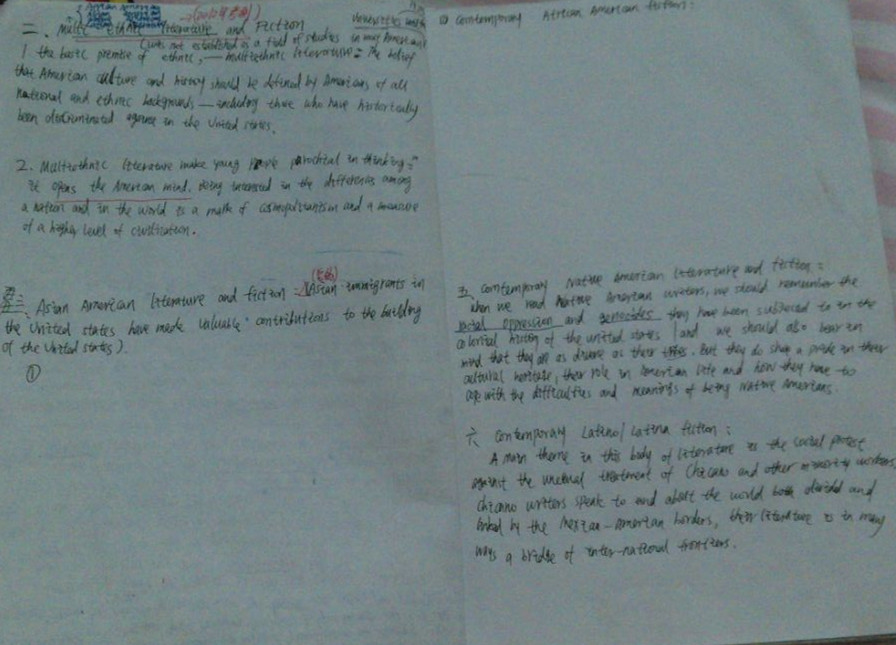 二、Multi-ethnic literature and Fiction
(was not established as a field of studies in many American
universities until
1 the basic premise of ethnic, — multiethnic literature: The belief
that American culture and history should be defined by Americans of all
national and ethnic backgrounds — including those who have historically
been discriminated against in the United States.
2. Multiethnic literature make young parochial in thinking:
It opens the American mind. Being interested in the differences among
a nation and in the world is a mark of cosmopolitanism and a measure
of a higher level of civilization.
三、Asian American literature and fiction: (Asian immigrants in
the United States have made valuable contributions to the building
of the United States).
①
① Contemporary African American fiction:
五、Contemporary Native American literature and fiction:
When we read Native American writers, we should remember the
racial oppression and genocides they have been subjected to in the
colonial history of the united states and we should also bear in
mind that they are as diverse as their tribes. But they do share a pride in their
cultural heritage, their role in American life and how they have to
cope with the difficulties and meanings of being Native Americans.
六、Contemporary Latino/Latina fiction:
A main theme in this body of literature is the social protest
against the unequal treatment of Chicano and other minority workers,
Chicano writers speak to and about the world both divided and
linked by the Mexican-American borders, their literature is in many
ways a bridge of inter-national frontiers.